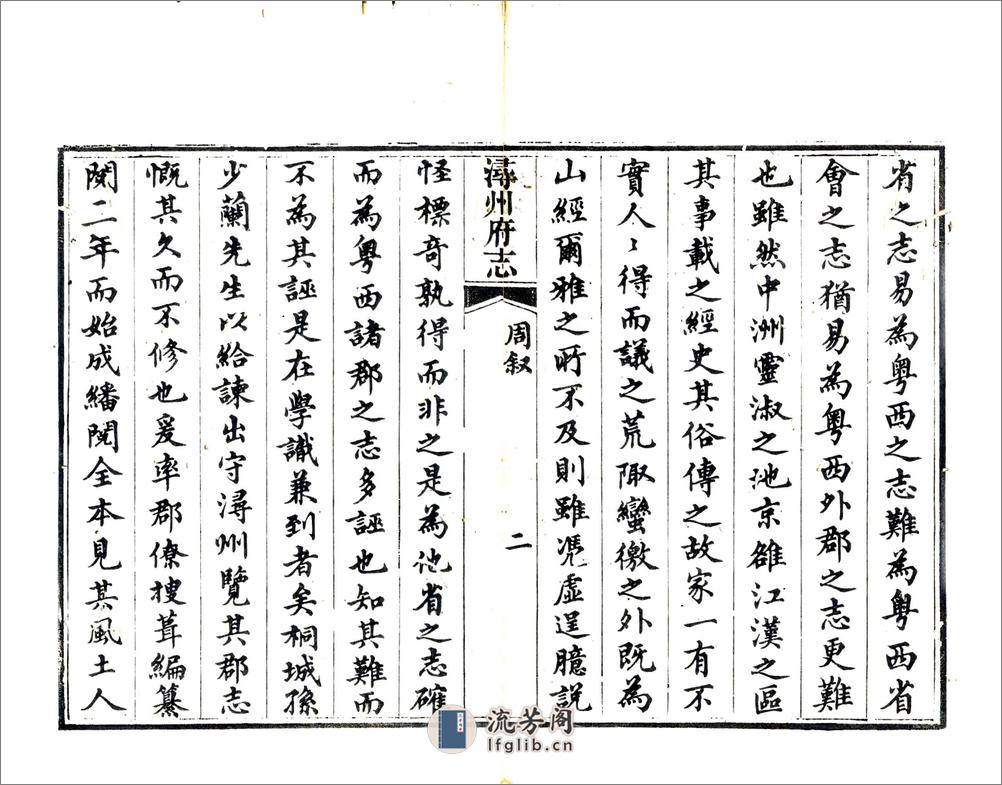 省之志易為粵西之志難為粵西省
會之志猶易為粵西外郡之志更難
也雖然中洲靈淑之地京雒江漢之區
其事載之經史其俗傳之故家一有不
實人〻得而議之荒陬蠻徼之外既為
山經爾雅之所不及則雖憑虛逞臆說
潯州府志
周叙
二
怪標奇孰得而非之是為他省之志確
而為粵西諸郡之志多誣也知其難而
不為其誣是在學識兼到者矣桐城孫
少蘭先生以給諫出守潯州覽其郡志
慨其久而不修也爰率郡僚搜葺編纂
閱二年而始成繙閱全本見其風土人
流芳阁
lfglib.cn